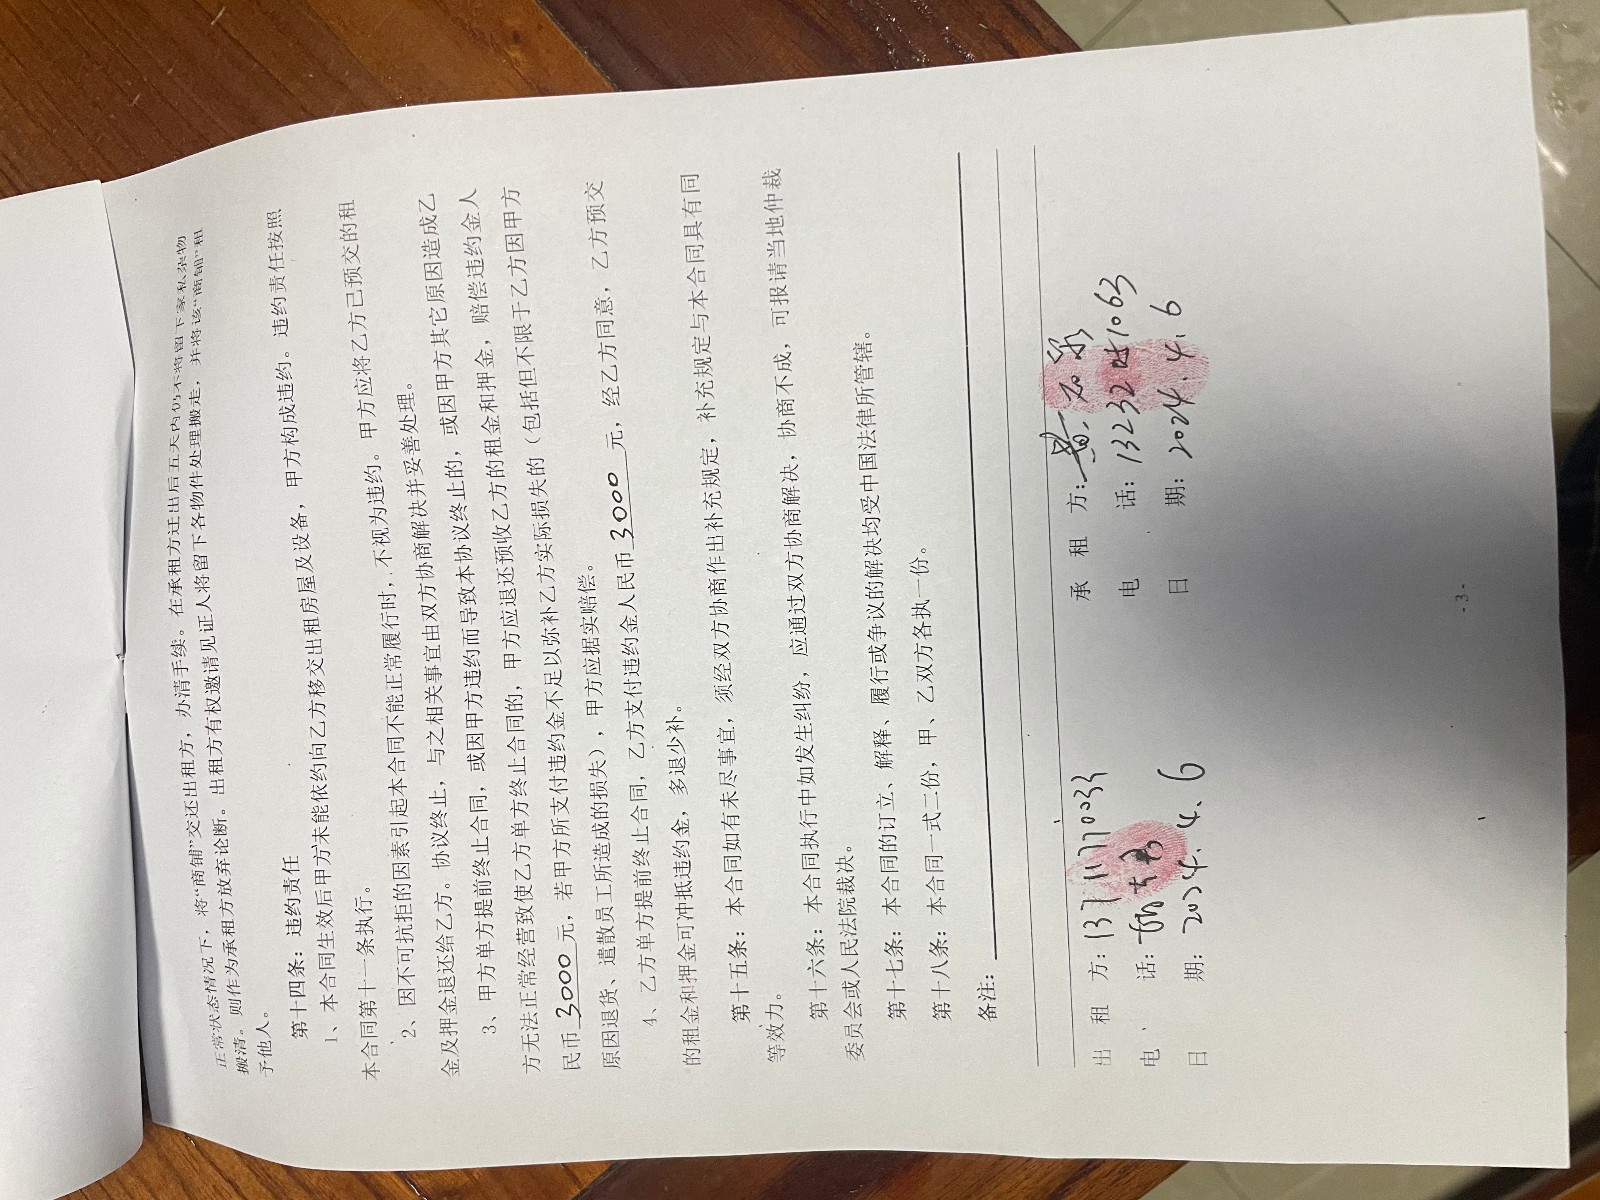 正常状态情况下，将“商铺”交还出租方，办清手续。在承租方迁出后五天内仍不将留下家私杂物
搬清。则作为承租方放弃论断。出租方有权邀请见证人将留下各物件处理搬走，并将该“商铺”租
予他人。
第十四条：违约责任
1、本合同生效后甲方未能依约向乙方移交出租房屋及设备，甲方构成违约。违约责任按照
本合同第十一条执行。
2、因不可抗拒的因素引起本合同不能正常履行时，不视为违约。甲方应将乙方已预交的租
金及押金退还给乙方。协议终止，与之相关事宜由双方协商解决并妥善处理。
3、甲方单方提前终止合同，或因甲方违约而导致本协议终止的，或因甲方其它原因造成乙
方无法正常经营致使乙方单方终止合同的，甲方应退还预收乙方的租金和押金，赔偿违约金人
民币3000元，若甲方所支付违约金不足以弥补乙方实际损失的（包括但不限于乙方因甲方
原因退货、遣散员工所造成的损失），甲方应据实赔偿。
4、乙方单方提前终止合同，乙方支付违约金人民币3000元，经乙方同意，乙方预交
的租金和押金可冲抵违约金，多退少补。
第十五条：本合同如有未尽事宜，须经双方协商作出补充规定，补充规定与本合同具有同
等效力。
第十六条：本合同执行中如发生纠纷，应通过双方协商解决，协商不成，可报请当地仲裁
委员会或人民法院裁决。
第十七条：本合同的订立、解释、履行或争议的解决均受中国法律所管辖。
第十八条：本合同一式二份，甲、乙双方各执一份。
备注：
出 租 方：13711170033
承 租 方：黄
电 话：
电 话：132321063
日 期：2024.4.6
日 期：2024.4.6
-3-